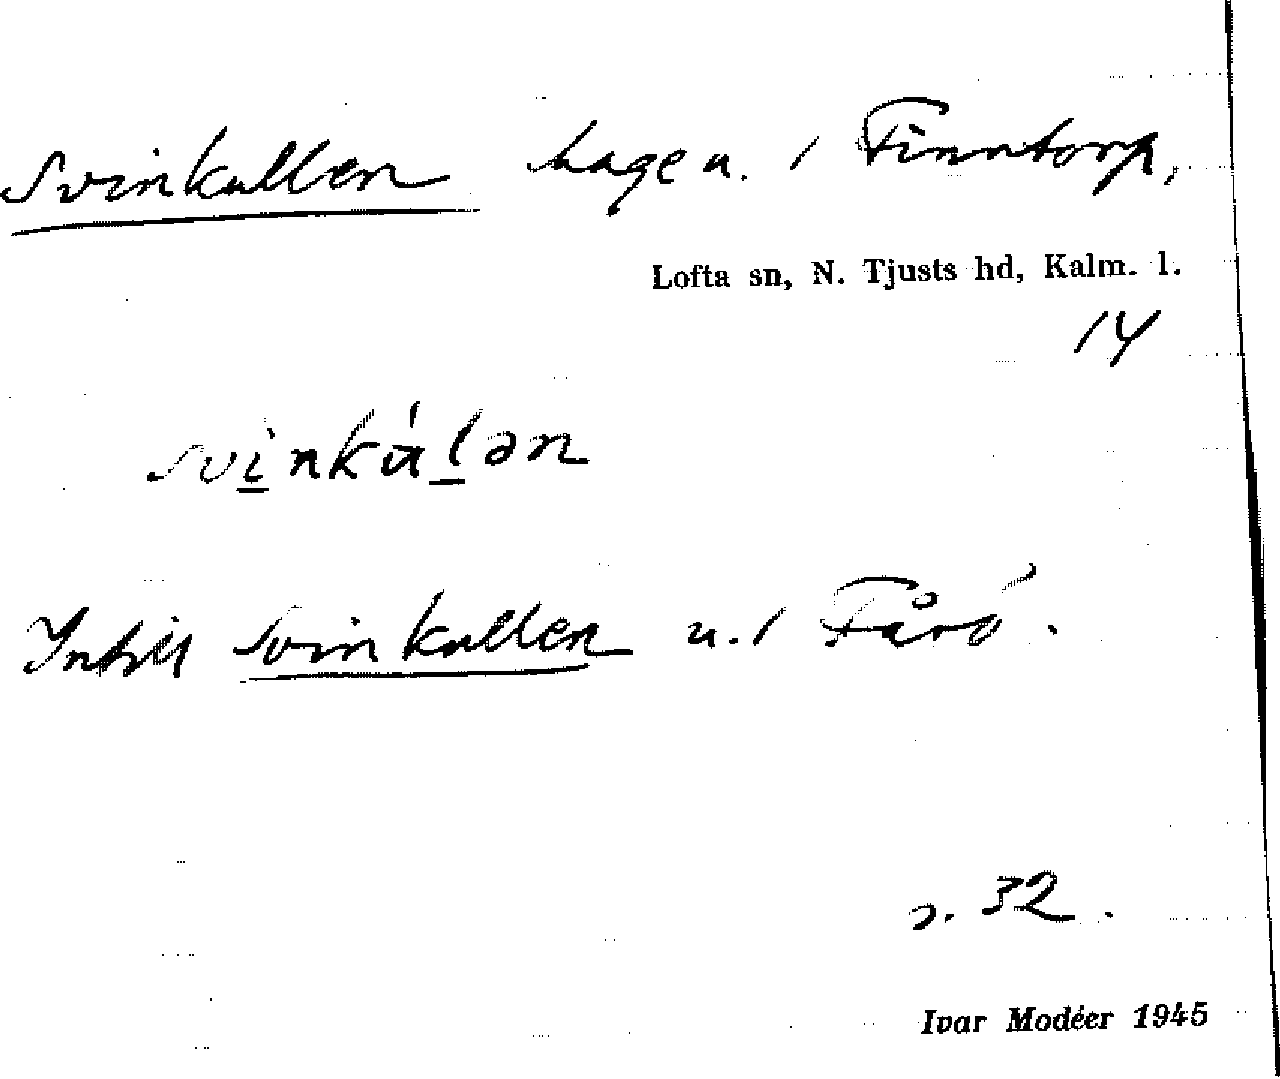 Svinkullen hage u. / Finntorp,
Lofta sn, N. Tjusts hd, Kalm. l.
14
svinkúlən
Intill Svinkullen u. / Fårö.
s. 32.
Ivar Modéer 1945